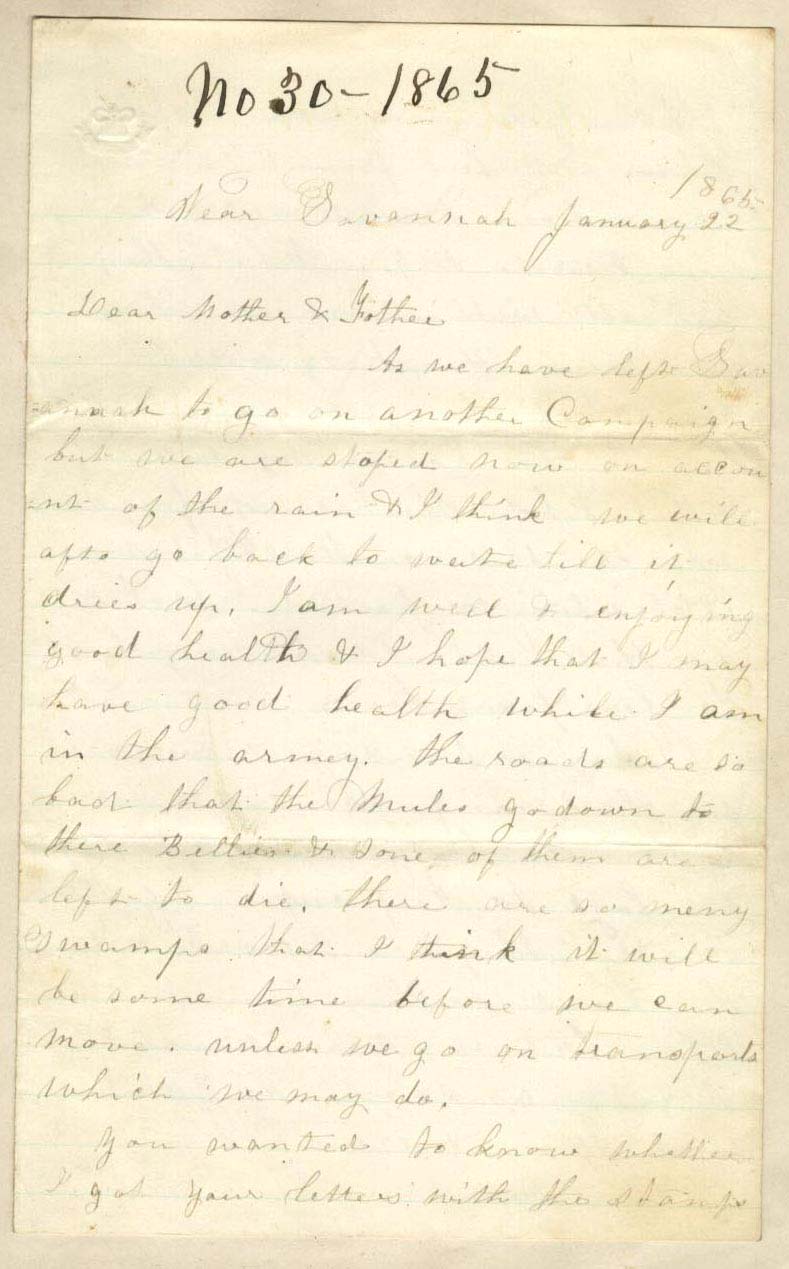 No 30 - 1865
1865
Near Savannah January 22
Dear Mother & Father
As we have left Sav
=annah to go on another Campaign
but we are stoped now on accou
=nt of the rain & I think we will
afto go back to waite till it
dries up. I am well & enjoying
good health & I hope that I may
have good health while I am
in the armey. the roads are so
bad that the Mules go down to
there Bellies & some of them are
left to die. there are so meny
Swamps that I think it will
be some time before we can
move. unless we go on transports
which we may do.
You wanted to know whether
I got your letters with the stamps